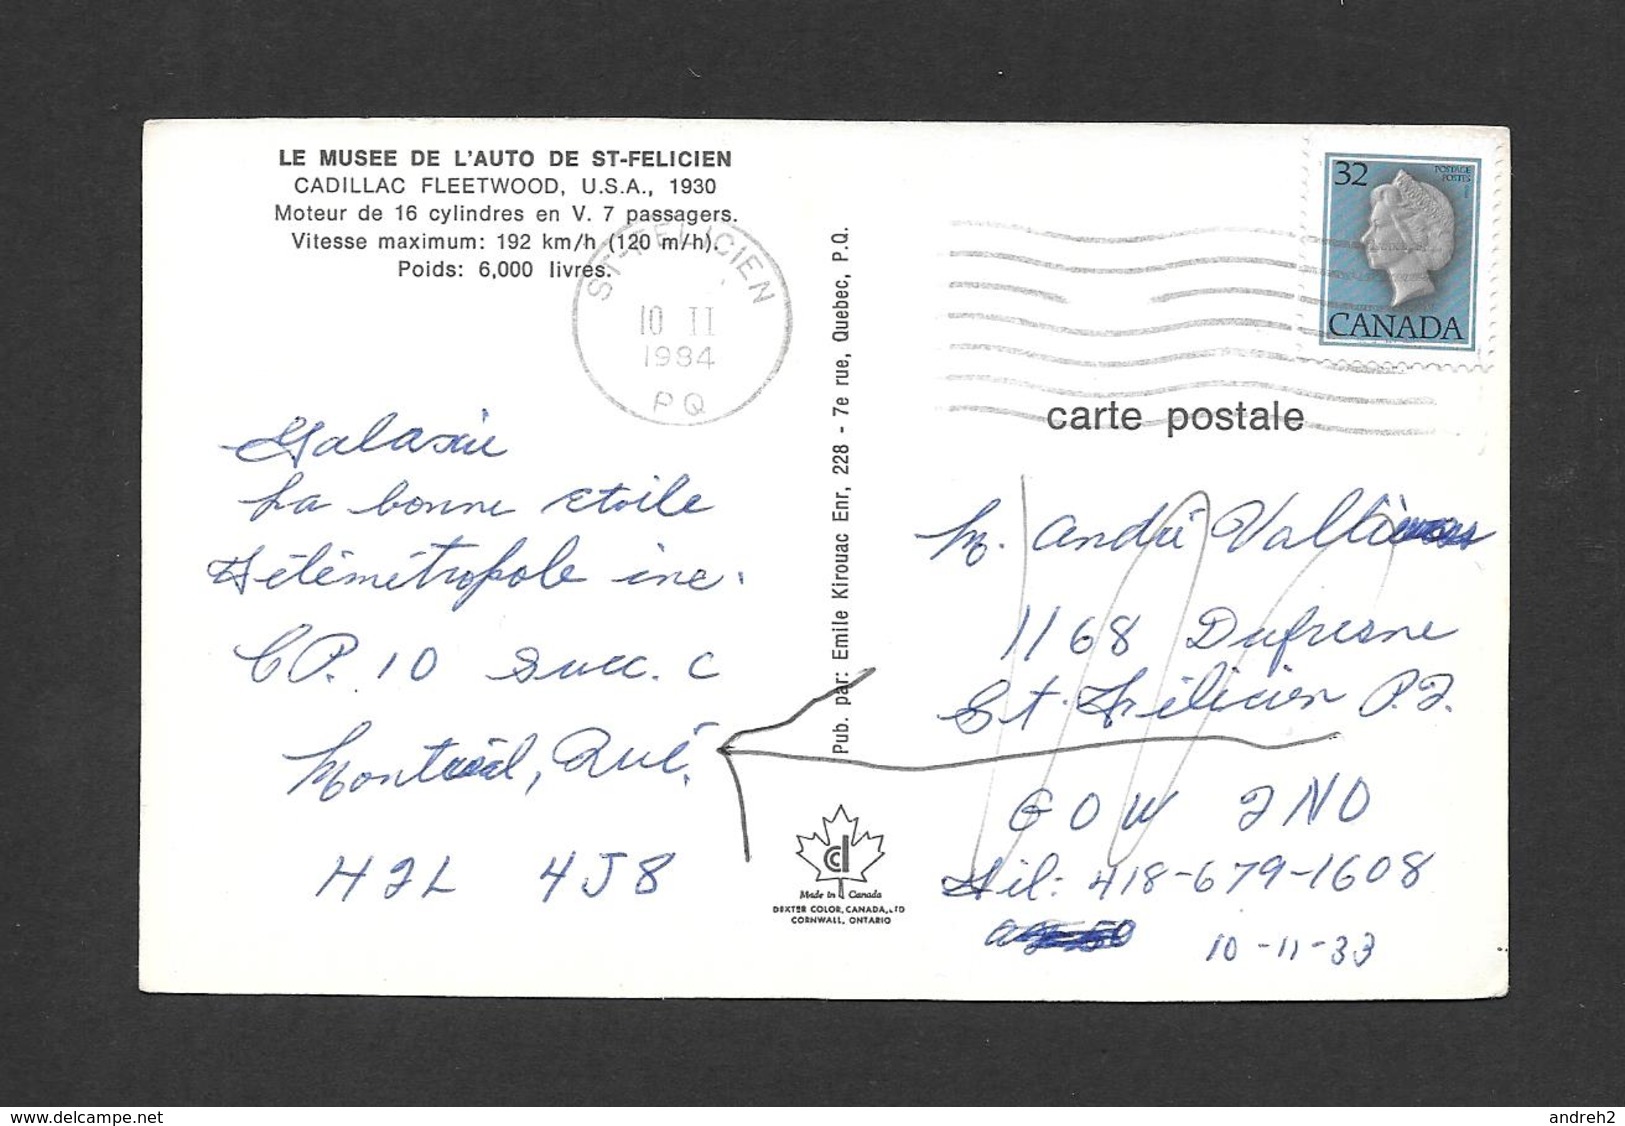 LE MUSEE DE L'AUTO DE ST-FELICIEN
CADILLAC FLEETWOOD, U.S.A., 1930
Moteur de 16 cylindres en V. 7 passagers.
Vitesse maximum: 192 km/h (120 m/h).
Poids: 6,000 livres.
ST-FELICIEN
10 II
1984
PQ
Galaxie
La bonne etoile
Télémétropole inc.
CP. 10 Succ. C
Montréal, Qué.
H2L 4J8
Pub. par: Emile Kirouac Enr, 228 - 7e rue, Quebec, P.Q.
Made in Canada
DEXTER COLOR, CANADA, LTD
CORNWALL, ONTARIO
32
POSTAGE
POSTES
CANADA
carte postale
M. André
1168 Dufresne
St. Félicien P.Q.
G0W 2N0
Tél: 418-679-1608
10-11-33
delcampe.net
andreh2